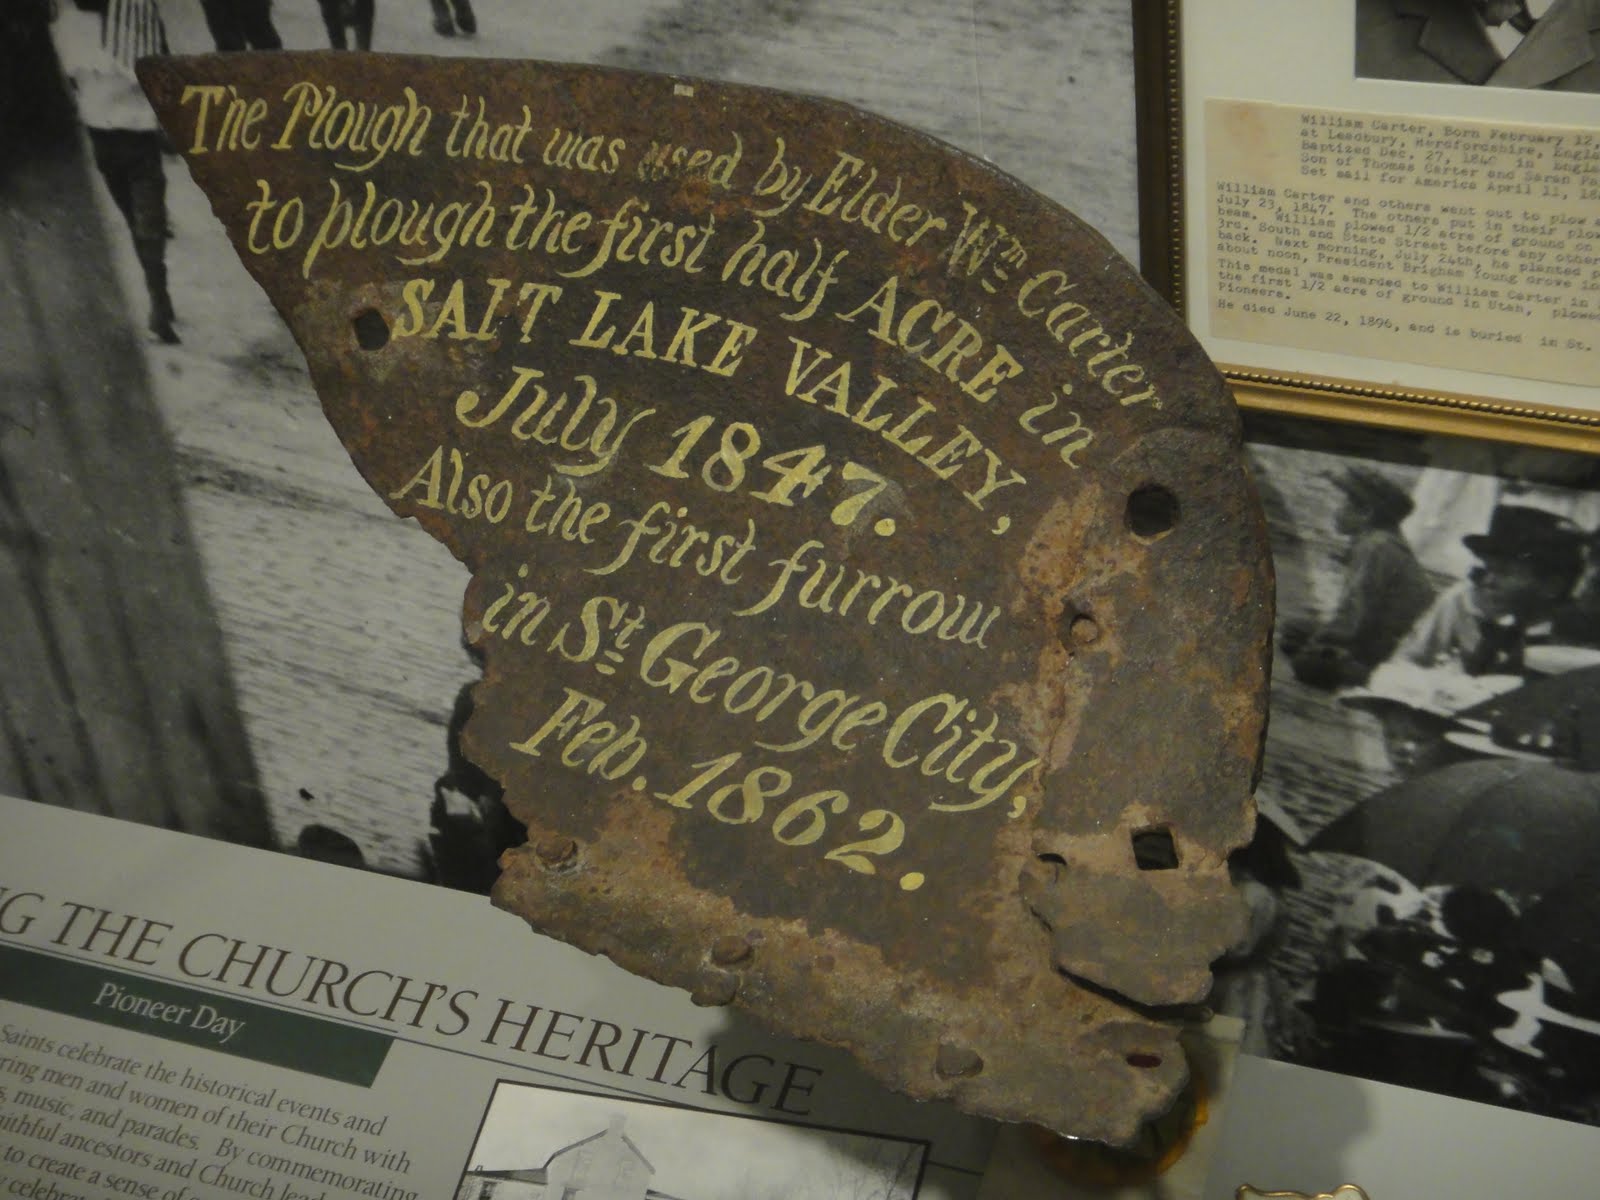 The Plough that was used by Elder Wm Carter
to plough the first half ACRE in
SALT LAKE VALLEY,
July 1847.
Also the first furrow
in St George City,
Feb. 1862.
William Carter, Born February 12,
at Leadbury, Herdfordshire, Engla
Baptized Dec. 27, 1840 in Engla
Son of Thomas Carter and Sarah Pa
Set sail for America April 11, 18
William Carter and others went out to plow a
July 23, 1847. The others put in their plow
beam. William plowed 1/2 acre of ground on
3rd. South and State Street before any other
back. Next morning, July 24th, he planted p
about noon, President Brigham Young drove in
This medal was awarded to William Carter in
the first 1/2 acre of ground in Utah, plowe
Pioneers.
He died June 22, 1896, and is buried in St.
G THE CHURCH'S HERITAGE
Pioneer Day
Saints celebrate the historical events and
ring men and women of their Church with
s, music, and parades. By commemorating
aithful ancestors and Church lead
to create a sense of
celebra